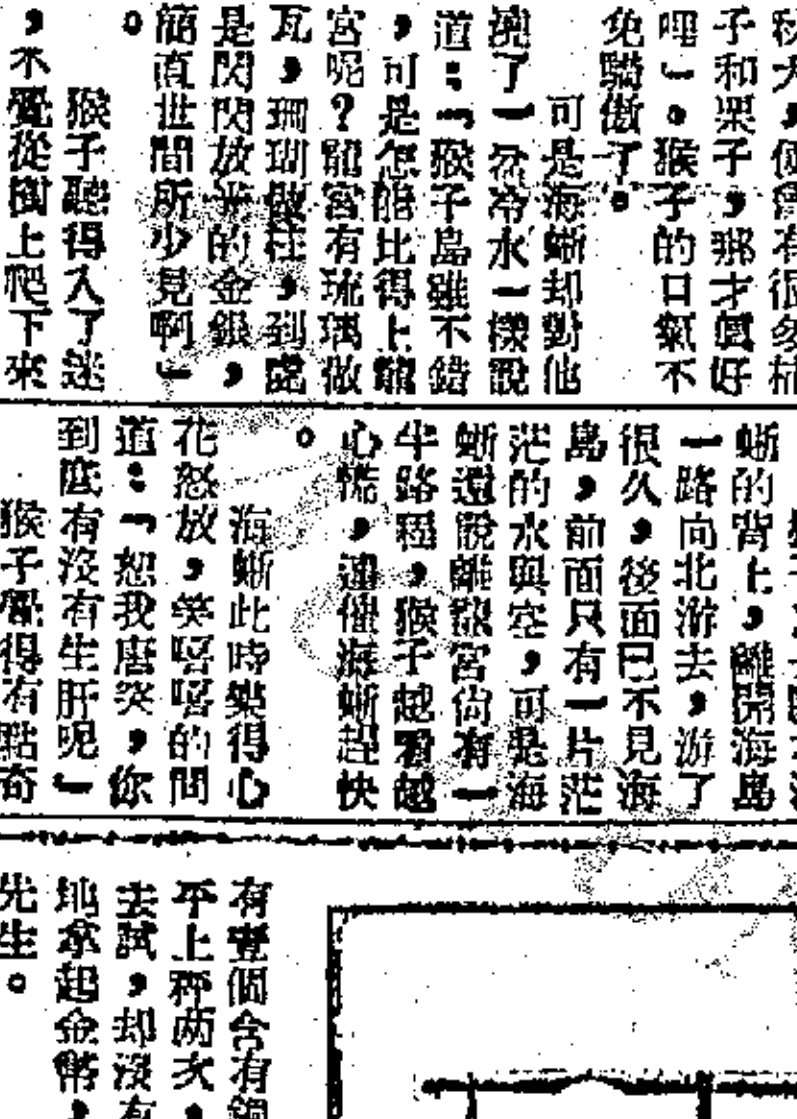 子和果子，那才眞好
哩」。猴子的口氣不
免驕傲了。
可是海蜥却對他
澆了一盆冷水一樣說
道：「猴子島雖不錯
，可是怎能比得上龍
宮呢？龍宮有琉璃做
瓦，珊瑚做柱，到處
是閃閃放光的金銀，
簡直世間所少見啊」
。
猴子聽得入了迷
，不覺從樹上爬下來
蜥的背上，離開海島
一路向北游去，游了
很久，後面已不見海
島，前面只有一片茫
茫的水與空，可是海
蜥還說離龍宮尙有一
半路程，猴子越看越
心慌，連催海蜥趕快
。
海蜥此時樂得心
花怒放，笑嘻嘻的問
道：「恕我唐突，你
到底有沒有生肝呢」
猴子覺得有點奇
有壹個含有銅
平上秤两次，
去試，却沒有
地拿起金幣，
先生。